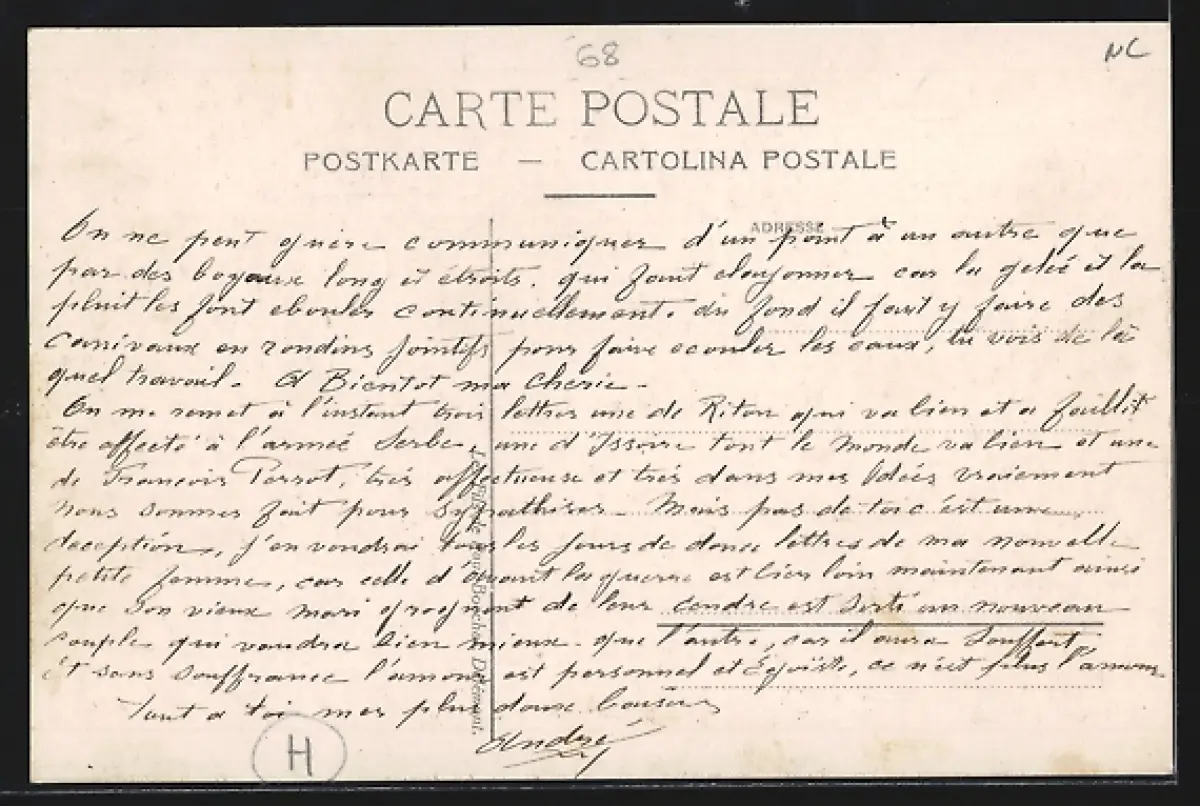 68
NC
CARTE POSTALE
POSTKARTE — CARTOLINA POSTALE
ADRESSE
On ne peut guère communiquer d'un point à un autre que
par des boyaux long et étroits, qui faut clayonner car la gelée et la
pluit les font ebouler continuellement. du fond il faut y faire des
canivaux en rondins jointifs pour faire ecouler les eaux, tu vois de là
quel travail. A Bientot ma cherie.
On me remet à l'instant trois lettres une de Riton qui va bien et a faillit
être affecté à l'armée Serbe, une d'Issoire tout le monde va bien et une
de François Perrot, très affectueuse et très dans mes Idées vraiement
nous sommes fait pour sypathiser. Mais pas de toi c'est une
deception, j'en voudrai tous les jours de douce lettres de ma nouvelle
petite femme, car celle d'avant la guerre est bien loin maintenant ainsi
que son vieux mari grognont de leur cendre est sorti un nouveau
couple qui vaudra bien mieux que l'autre, car il aura souffert
et sans souffrance l'amour est personnel et Egoiste, ce n'est plus l'amour
Tout a toi mes plus doux baisers
André
H